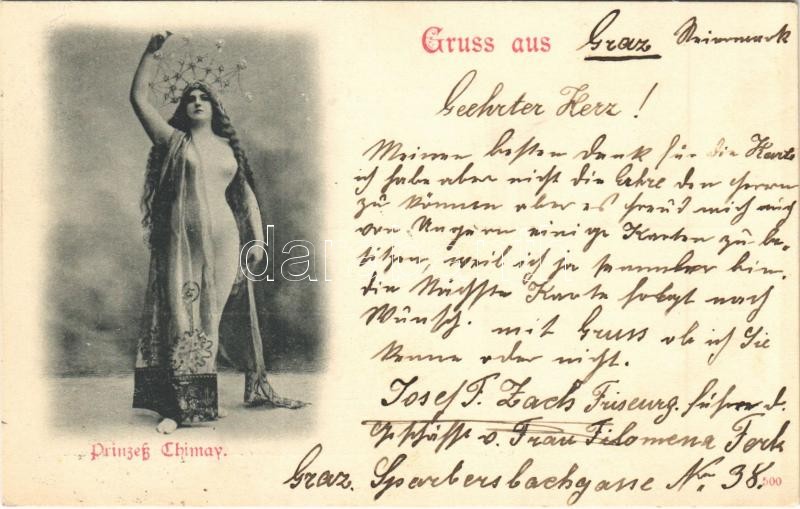 Gruss aus Graz Steiermark
Geehrter Herr!
Meinen besten Dank für die Karte
ich habe aber nicht die Ehre den Herrn
zu können aber es freud mich auch
von Ungarn einige Karten zu be-
sitzen, weil ich ja Sammler bin.
die Nächste Karte folgt nach
Wunsch. mit Gruss ob ich Sie
kenne oder nicht.
Josef F. Zach Friseurg. führer d.
Geschäfte v. Frau Filomena
Graz. Sparbersbachgasse No 38.
500
Prinzeß Chimay.